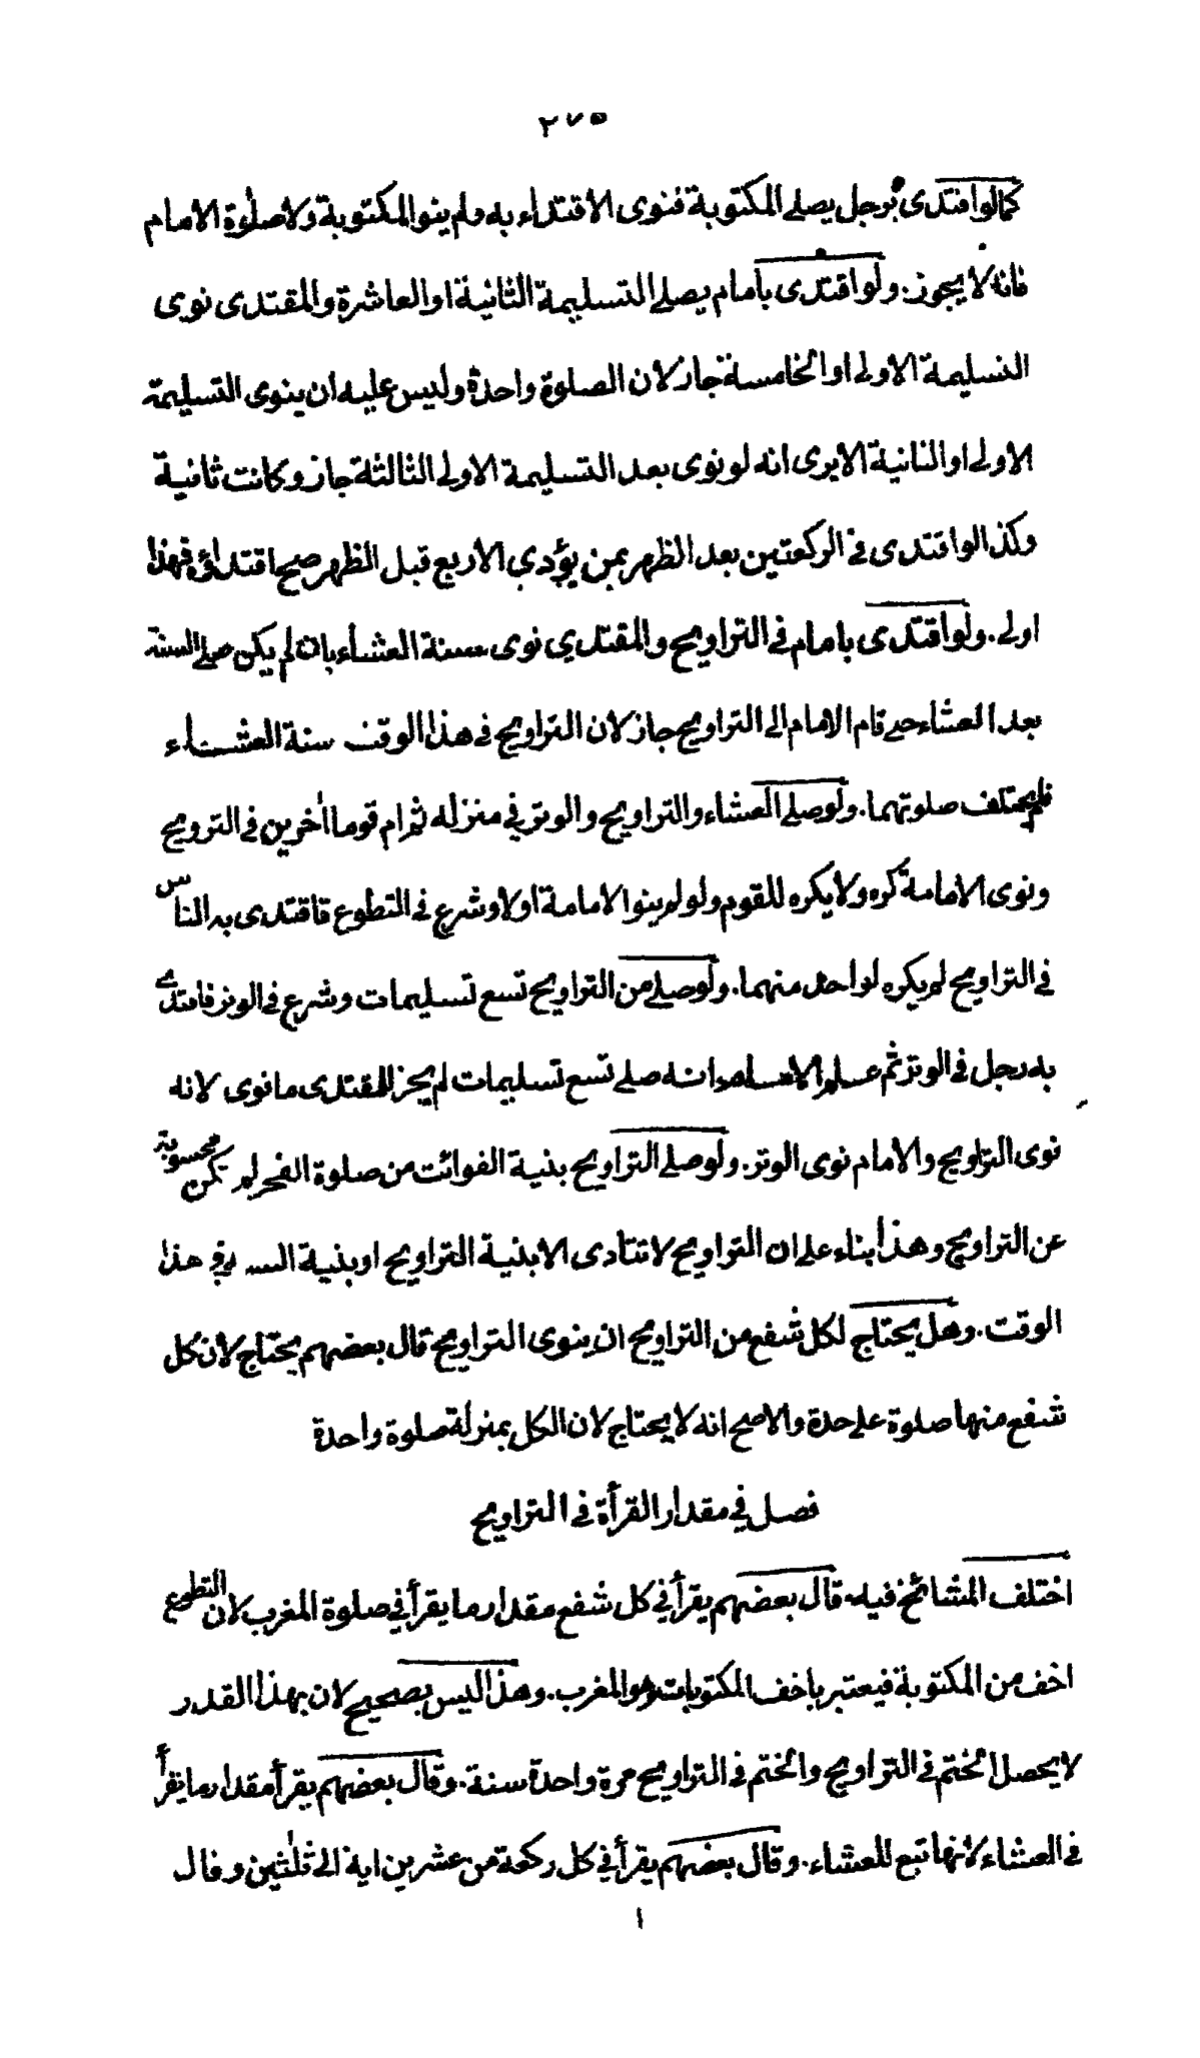 ٢٧٥
كما لو اقتدى برجل يصلے المكتوبة فنوى الاقتداء به ولم ينو المكتوبة ولا صلوة الامام
فانه لا يجوز. ولو اقتدى بامام يصلے التسليمة الثانية او العاشرة والمقتدى نوى
التسليمة الاولى او الخامسة جاز لان الصلوة واحدة وليس عليه ان ينوى التسليمة
الاولى او الثانية الايرى انه لو نوى بعد التسليمة الاولى الثالثة جاز وكانت ثانية
وكذا لو اقتدى فى الركعتين بعد الظهر بمن يؤدي الاربع قبل الظهر صح اقتداؤه فهذا
اولى. ولو اقتدى بامام فى التراويح والمقتدي نوى سنة العشاء بان لم يكن صلے السنة
بعد العشاء حتے قام الامام الى التراويح جاز لان التراويح فى هذا الوقت سنة العشاء
فلم يختلف صلوتهما. ولو صلے العشاء والتراويح والوتر في منزله ثم ام قوما اٰخرين فى الترويح
ونوى الامامة كره ولا يكره للقوم ولو لم ينو الامامة اولا وشرع فى التطوع فاقتدى به الناس
فى التراويح لم يكره لواحد منهما. ولو صلے من التراويح تسع تسليمات وشرع فى الوتر فاقتدے
به رجل فى الوتر ثم علم الامام انه صلے تسع تسليمات لم يجز للمقتدى ما نوى لانه
نوى التراويح والامام نوى الوتر. ولو صلے التراويح بنية الفوائت من صلوة الفجر لم تكن محسوبة
عن التراويح وهذا بناء على ان التراويح لا تتادى الا بنية التراويح او بنية السنة في هذا
الوقت. وهل يحتاج لكل شفع من التراويح ان ينوى التراويح قال بعضهم يحتاج لان كل
شفع منها صلوة على حدة والاصح انه لا يحتاج لان الكل بمنزلة صلوة واحدة
فصل في مقدار القرأة فى التراويح
اختلف المشائخ فيه قال بعضهم يقرأ في كل شفع مقدار ما يقرأ في صلوة المغرب لان التطوع
اخف من المكتوبة فيعتبر باخف المكتوبات وهو المغرب. وهذا ليس بصحيح لان بهذا القدر
لا يحصل الختم فى التراويح والختم فى التراويح مرة واحدة سنة. وقال بعضهم يقرأ مقدار ما يقرأ
فى العشاء لانها تبع للعشاء. وقال بعضهم يقرأ في كل ركعة من عشرين اية الى ثلٰثين وقال
ا